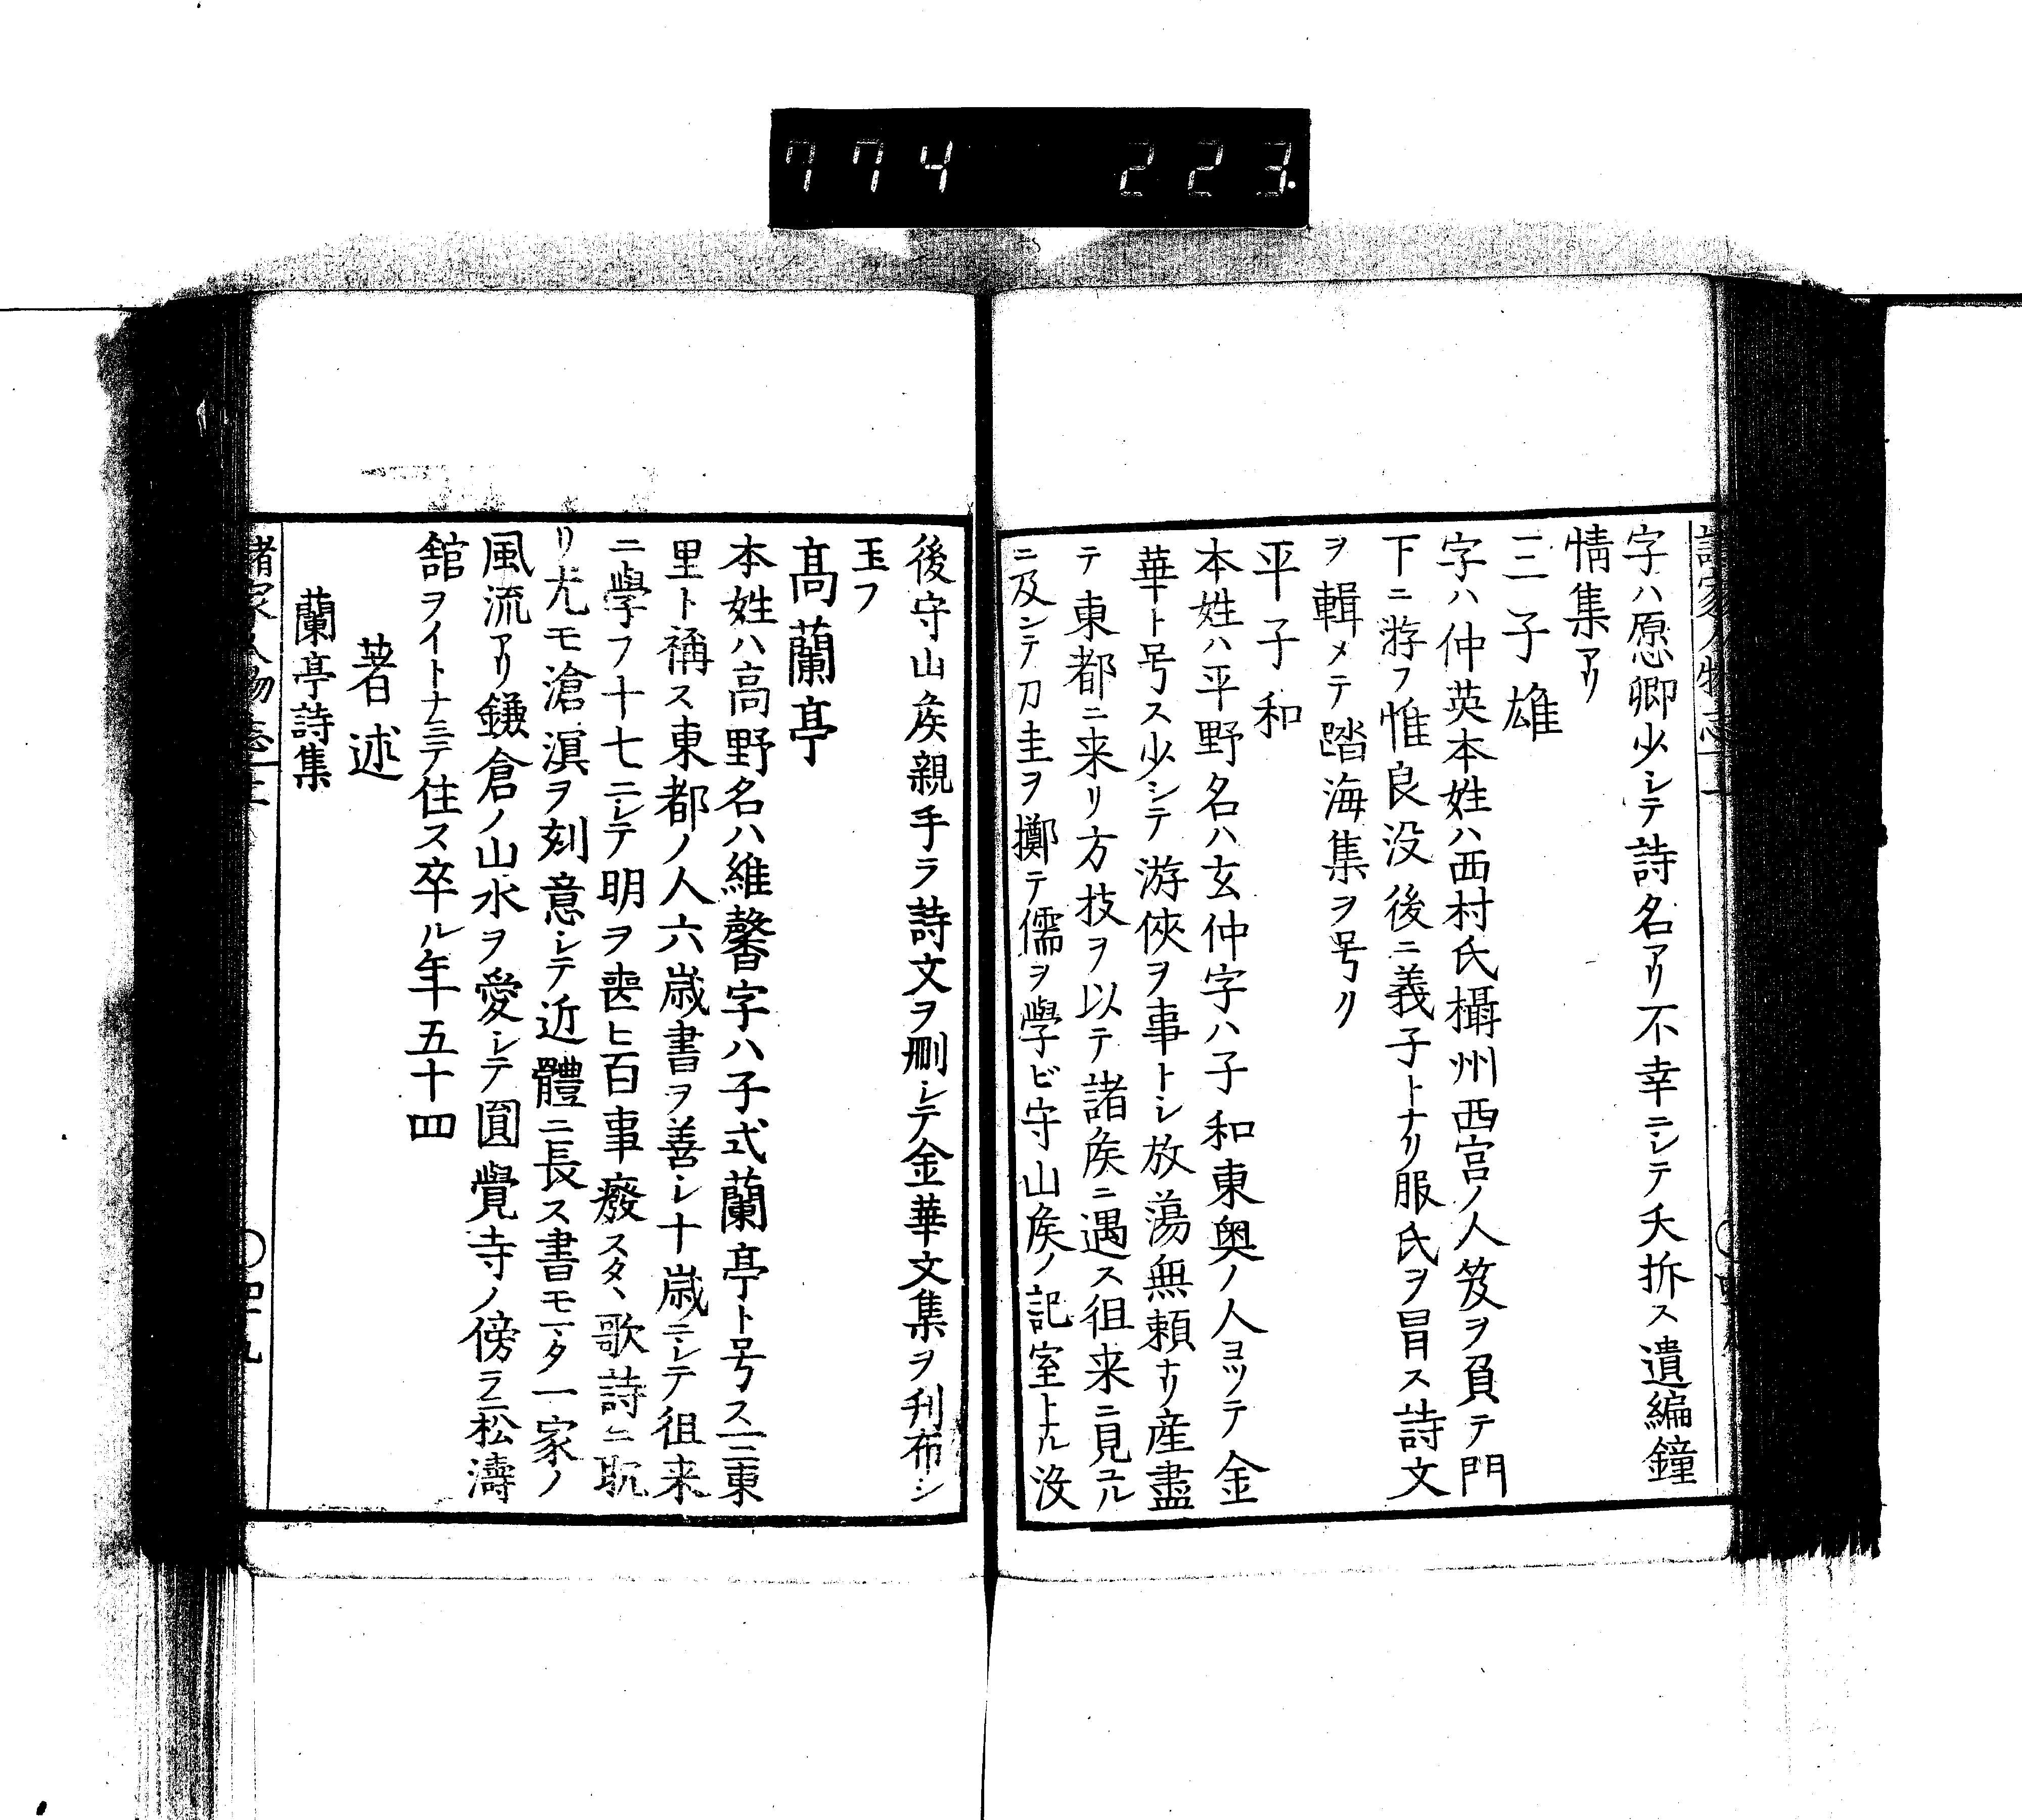 774 223.
字ハ愿卿少シテ詩名アリ不幸ニシテ夭拆ス遺編鐘
情集アリ
三子雄
字ハ仲英本姓ハ西村氏攝州西宮ノ人笈ヲ負テ門
下ニ游フ惟良没後ニ義子トナリ服氏ヲ冒ス詩文
ヲ輯メテ踏海集ヲ号ク
平子和
本姓ハ平野名ハ玄仲字ハ子和東奥ノ人ヨツテ金
華ト号ス少シテ游俠ヲ事トシ放蕩無頼ナリ産盡
テ東都ニ来リ方技ヲ以テ諸矦ニ遇ス徂来ニ見ユル
ニ及ンテ刀圭ヲ擲テ儒ヲ學ビ守山矦ノ記室トナル没
後守山矦親手ラ詩文ヲ刪シテ金華文集ヲ刋布シ
玉フ
高蘭亭
本姓ハ高野名ハ維馨字ハ子式蘭亭ト号ス一ニ東
里ト稱ス東都ノ人六歳書ヲ善シ十歳ニシテ徂来
ニ學フ十七ニシテ明ヲ喪ヒ百事癈スタヽ歌詩ニ耽
リ尤モ滄溟ヲ刻意シテ近體ニ長ス書モマタ一家ノ
風流アリ鎌倉ノ山水ヲ愛シテ圓覺寺ノ傍ラニ松濤
舘ヲイトナミテ住ス卒ル年五十四
著述
蘭亭詩集
諸家人物志